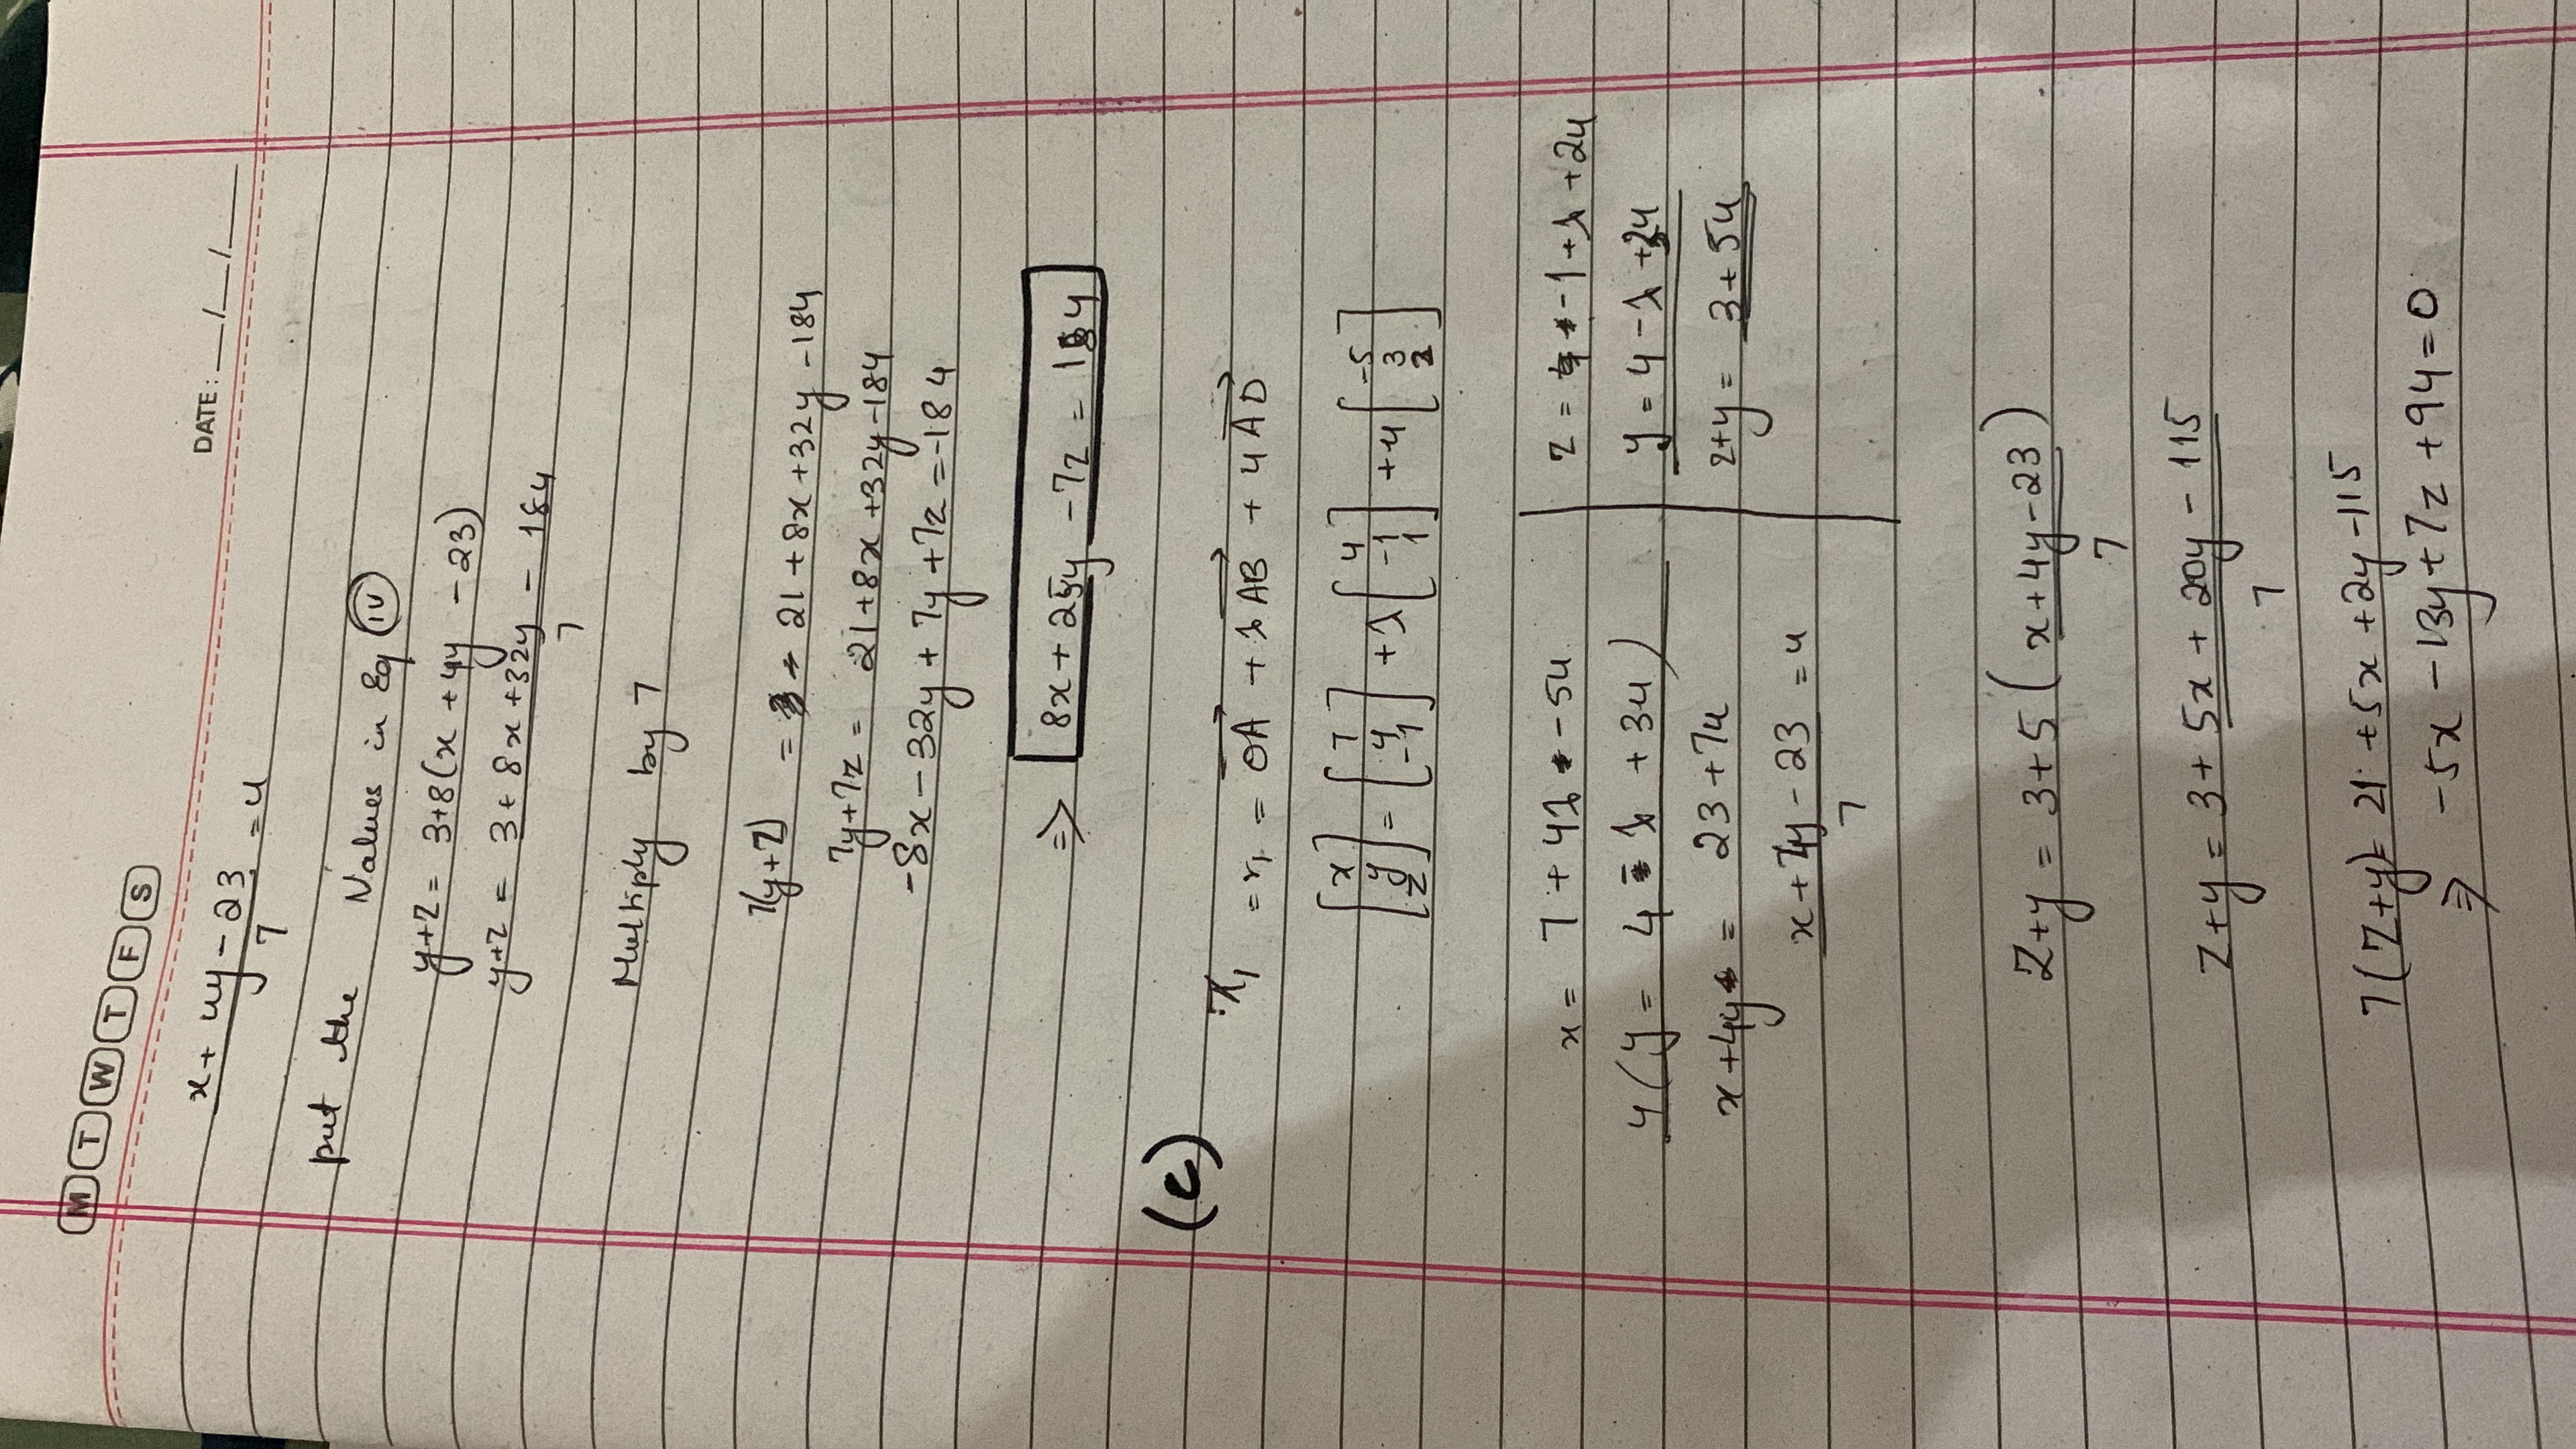 M T W T F S
DATE: __/__/____
x + 4y - 23 / 7 = u
put the Values in Eq (IV)
y+z = 3+8(x + 4y - 23)
y+z = 3 + 8x + 32y - 184 / 7
Multiply by 7
7(y+z) = 21 + 8x + 32y - 184
7y + 7z = 21 + 8x + 32y - 184
-8x - 32y + 7y + 7z = -184
=> 8x + 25y - 7z = 184
(c)
π₁ = r₁ = OA + λ AB + u AD
[x y z] = [7 4 -1] + λ [4 -1 1] + u [-5 3 2]
x = 7 + 4λ - 5u
4(y = 4 - λ + 3u)
x + 4y = 23 + 7u
x + 4y - 23 / 7 = u
z = -1 + λ + 2u
y = 4 - λ + 3u
z+y = 3 + 5u
z+y = 3+5(x+4y-23 / 7)
z+y = 3 + 5x + 20y - 115 / 7
7(z+y) = 21 + 5x + 2y - 115
=> -5x - 13y + 7z + 94 = 0